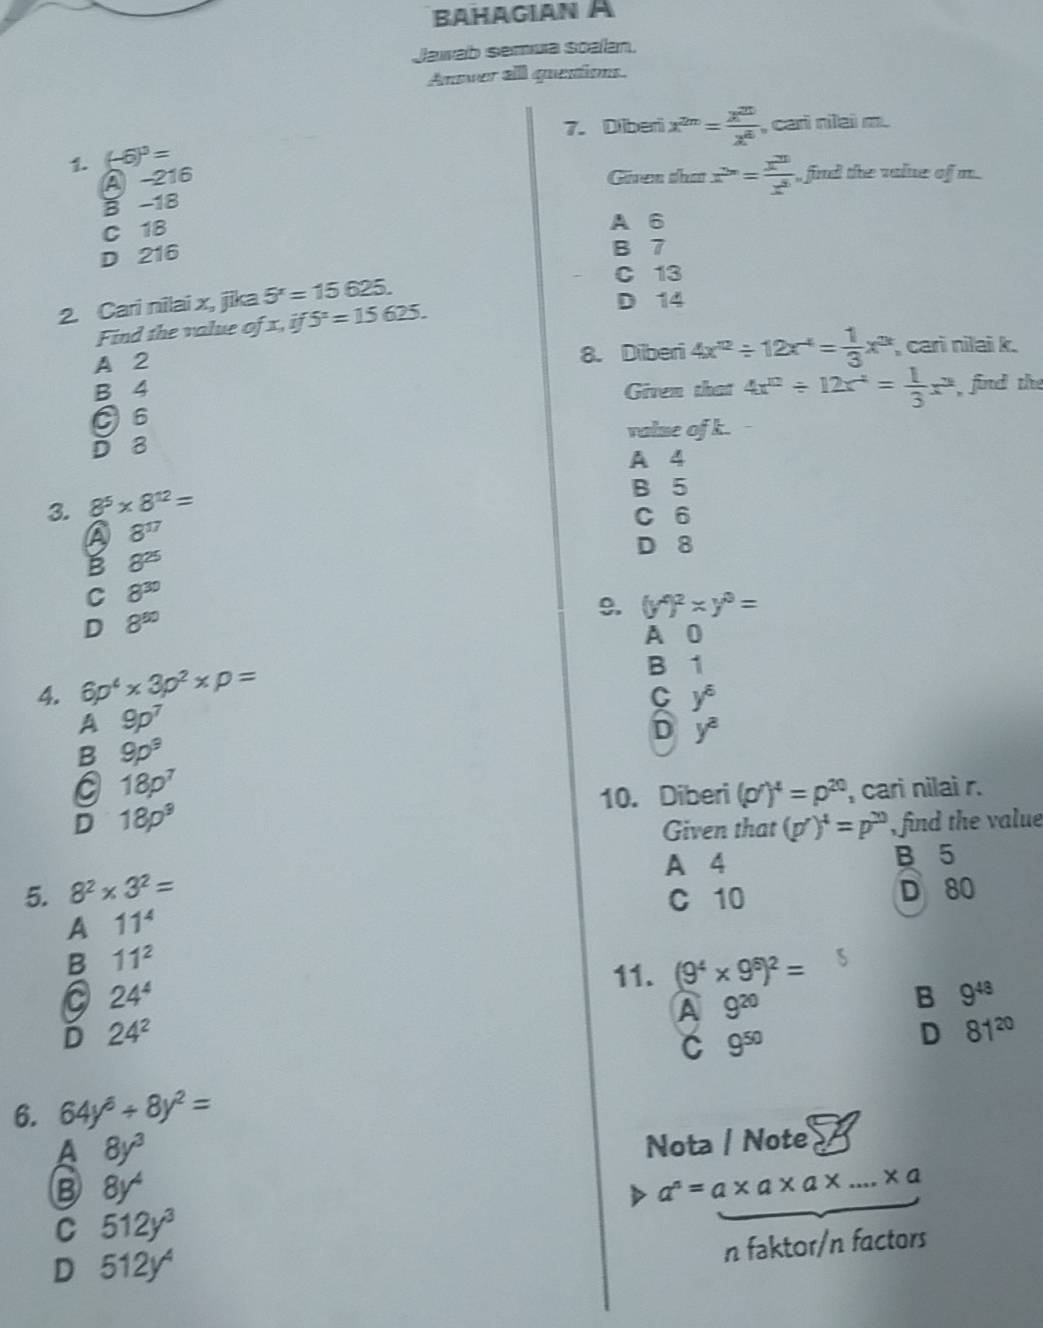 BAHAGIAN A
Jawab semua soalan.
Answer all questions.
1. (–6)³ =
A –216
B –18
C 18
D 216
2. Cari nilai x, jika 5ˣ = 15 625.
Find the value of x, if 5ˣ = 15 625.
A 2
B 4
C 6
D 8
3. 8⁵ × 8¹² =
A 8¹⁷
B 8²⁵
C 8³⁰
D 8⁶⁰
4. 6p⁴ × 3p² × p =
A 9p⁷
B 9p⁹
C 18p⁷
D 18p⁹
5. 8² × 3² =
A 11⁴
B 11²
C 24⁴
D 24²
6. 64y⁶ ÷ 8y² =
A 8y³
B 8y⁴
C 512y³
D 512y⁴
7. Diberi x²ᵐ = x²⁰/x⁶, cari nilai m.
Given that x²ᵐ = x²⁰/x⁶, find the value of m.
A 6
B 7
C 13
D 14
8. Diberi 4x¹² ÷ 12x⁻⁴ = 1/3 x²ᵏ, cari nilai k.
Given that 4x¹² ÷ 12x⁻⁴ = 1/3 x²ᵏ, find the
value of k.
A 4
B 5
C 6
D 8
9. (y⁴)² × y⁰ =
A 0
B 1
C y⁶
D y⁸
10. Diberi (pʳ)⁴ = p²⁰, cari nilai r.
Given that (pʳ)⁴ = p²⁰, find the value
A 4 B 5
C 10 D 80
11. (9⁴ × 9⁶)² = 5
A 9²⁰ B 9⁴⁸
C 9⁵⁰ D 81²⁰
Nota / Note
aⁿ = a × a × a × .... × a
n faktor/n factors